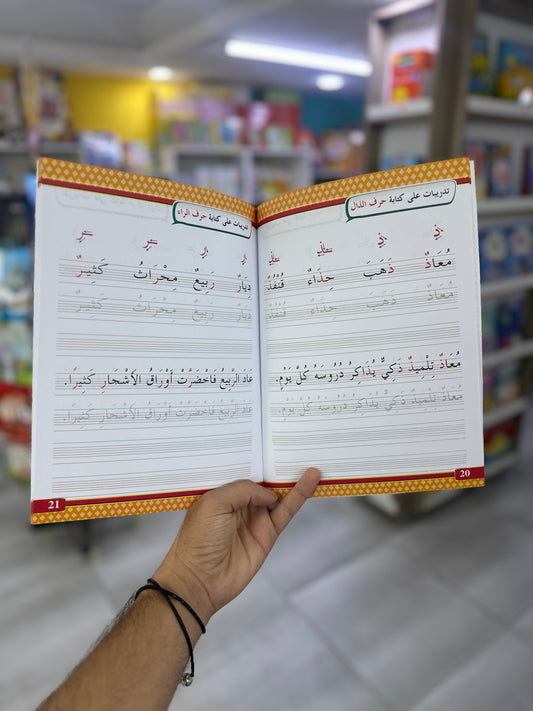 تدريبات على كتابة حرف الذال
مُعَاذٌ ذَهَبَ حِذَاءٌ قُنْفُذٌ
مُعَاذٌ ذَهَبَ حِذَاءٌ قُنْفُذٌ
مُعَاذٌ تِلْمِيذٌ ذَكِيٌّ يُذَاكِرُ دُرُوسَهُ كُلَّ يَوْمٍ.
مُعَاذٌ تِلْمِيذٌ ذَكِيٌّ يُذَاكِرُ دُرُوسَهُ كُلَّ يَوْمٍ.
20
تدريبات على كتابة حرف الراء
دِيَارٌ رَبِيعٌ مِحْرَاثٌ كَثِيرٌ
دِيَارٌ رَبِيعٌ مِحْرَاثٌ كَثِيرٌ
عَادَ الرَّبِيعُ فَاخْضَرَّتْ أَوْرَاقُ الأَشْجَارِ كَثِيرًا.
عَادَ الرَّبِيعُ فَاخْضَرَّتْ أَوْرَاقُ الأَشْجَارِ كَثِيرًا.
21